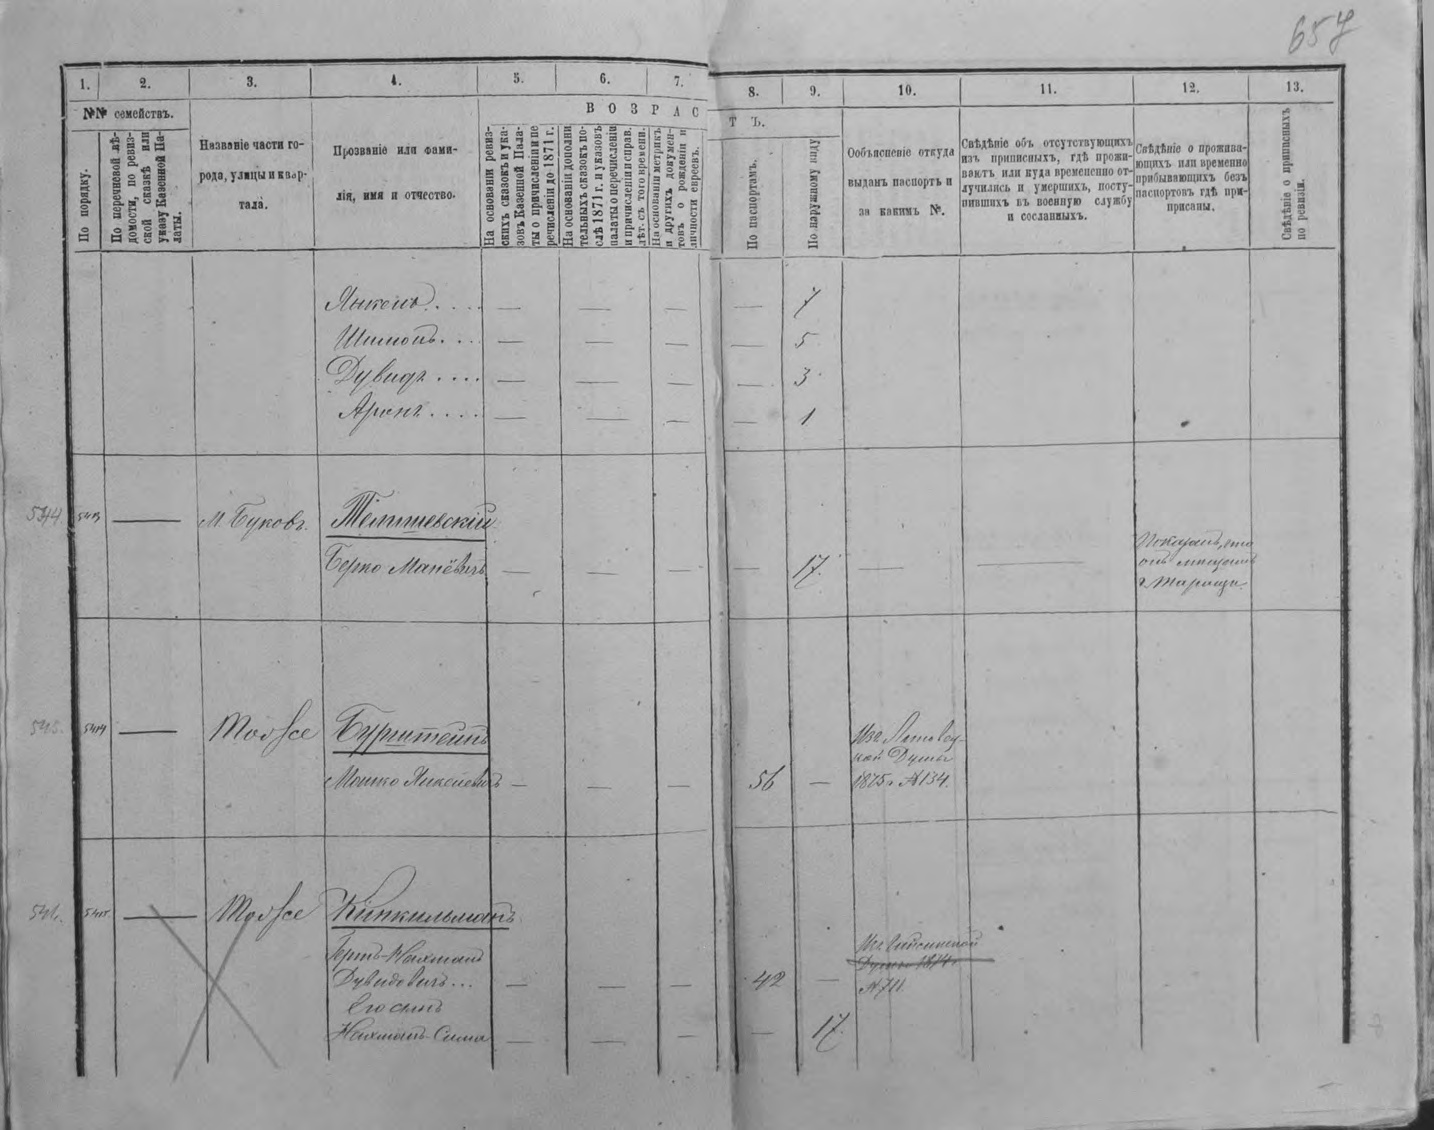 657
1. 2. 3. 4. 5. 6. 7. 8. 9. 10. 11. 12. 13.
№№ семействъ.
По порядку.
По перечневой вѣ-
домости, по ревиз-
ской сказкѣ или
указу Казенной Па-
латы.
Названіе части го-
рода, улицы и квар-
тала.
Прозваніе или фами-
лія, имя и отчество.
ВОЗРАСТЪ.
На основаніи ревиз-
скихъ сказокъ и ука-
зовъ Казенной Пала-
ты о причисленіи и пе
речисленіи до 1871 г.
На основаніи дополни
тельныхъ сказокъ по-
слѣ 1871 г. и указовъ
палаты о перечисленіи
и причисленіи и справ.
лѣт. съ того времени.
На основаніи метрикъ
и другихъ докумен-
товъ о рожденіи и
личности евреевъ.
По паспортамъ.
По наружному виду
Ообъясненіе откуда
выданъ паспортъ и
за какимъ №.
Свѣдѣніе объ отсутствующихъ
изъ приписныхъ, гдѣ прожи-
ваютъ или куда временно от-
лучились и умершихъ, посту-
пившихъ въ военную службу
и сосланныхъ.
Свѣдѣніе о прожива-
ющихъ или временно
прибывающихъ безъ
паспортовъ гдѣ при-
писаны.
Свѣдѣніе о приписныхъ
по ревизіи.
Янкель. . . . — — — — 7
Шимонъ. . . — — — — 5
Дувидъ . . . . — — — — 3
Аронъ . . . . — — — — 1
544 — М Буковъ.
Берко — — — — 17. — —
Показалъ, что
онъ мещанинъ
г. Таращи.
545. 5414 — Тоже Бурштейнъ
Мошко — — — 56 —
Думы
1875 г. № 134.
546. 5415 — Тоже Кинкильманъ
Нахманъ
Дувидовичъ... — — — 42 —
Его сынъ
Нахманъ-Симха — — — — 17.
Изъ Гайсинской
Думы 1874 г.
№ 711.